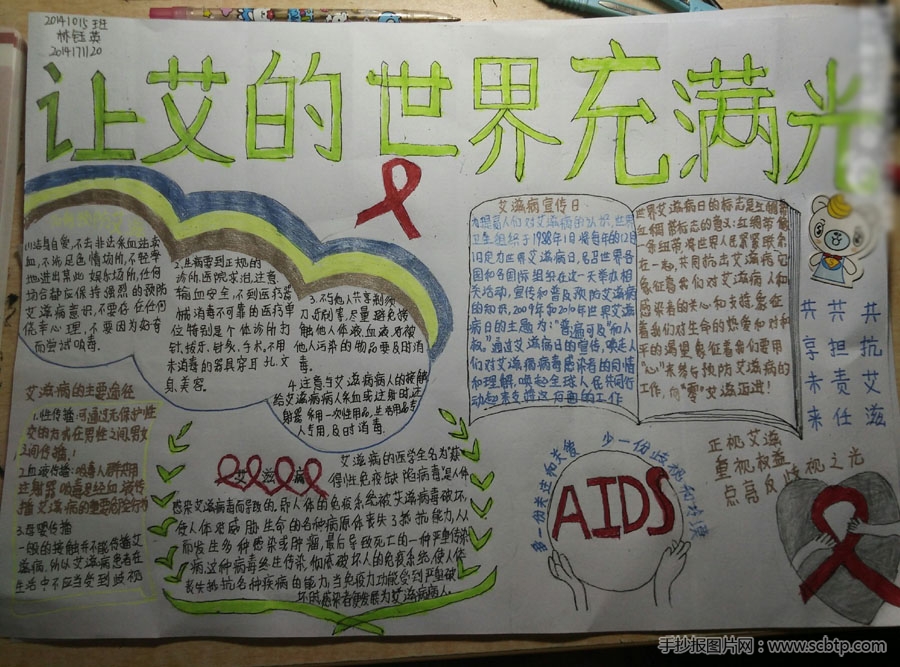 20141015班
林钰英
2014171120
让艾的世界充满光
1.洁身自爱,不去非法采血站卖
血,不涉足色情场所,不轻率
地进出某些娱乐场所,任何
场合都应保持强烈的预防
艾滋病意识,不要存在任何
侥幸心理,不要因为好奇
而尝试吸毒.
2.生病要到正规的
诊所,医院求治,注意
输血安全,不到医疗器
械消毒不可靠的医疗单
位特别是个体诊所打
针,拔牙,针灸,手术.不用
未消毒的器具穿耳孔,文
身,美容.
3.不与他人共享剃须
刀,牙刷等,尽量避免接
触他人体液,血液,对被
他人污染的物品要及时消
毒.
4.注意与艾滋病病人的接触
给艾滋病病人采血或注射时,注
射器采用一次性用品,生活用品专
人专用,及时消毒.
艾滋病宣传日.
为提高人们对艾滋病的认识,世界
卫生组织于1988年1月将每年的12月
1日定为世界艾滋病日,号召世界各
国和各国际组织在这一天举办相
关活动,宣传和普及预防艾滋病
的知识,2009年和2010年世界艾滋
病日的主题为:“普遍可及”和人
权.”通过艾滋病日的宣传,唤起人
们对艾滋病病毒感染者的同情
和理解,唤起全球人民共同行
动起来支持这方面的工作
世界艾滋病日的标志是红绸带
红绸带标志的意义:红绸带像
一条纽带,将世界人民紧紧联系
在一起,共同抗击艾滋病,它
象征着我们对艾滋病人和
感染者的关心和支持;象征
着我们对生命的热爱和对和
平的渴望;象征着我们要用
“心”来参与预防艾滋病的
工作,向“零”艾滋迈进!
共抗艾滋
共担责任
共享未来
艾滋病的主要途径
1.性传播:可通过无保护性
交的方式在男性之间,男女
之间传播.
2.血液传播:吸毒人群共用
注射器吸毒是经血液传
播艾滋病的重要危险行为
3.母婴传播
一般的接触并不能传播艾
滋病,所以艾滋病患者在
生活中不应当受到歧视
艾滋病
艾滋病的医学全名为获
得性免疫缺陷病毒,是人体
感染艾滋病毒而导致的.即人体的免疫系统被艾滋病毒破坏,
使人体对威胁生命的各种病原体丧失了抵抗能力,从
而发生多种感染或肿瘤,最后导致死亡的一种严重传染
病.这种病毒终生传染,彻底破坏人的免疫系统,使人体
丧失抵抗各种疾病的能力,当免疫力功能受到严重破
坏时感染者便发展为艾滋病病人.
少一份歧视和
AIDS
正视艾滋
重视权益
点亮反歧视之光
手抄报图片网:www.scbtp.com